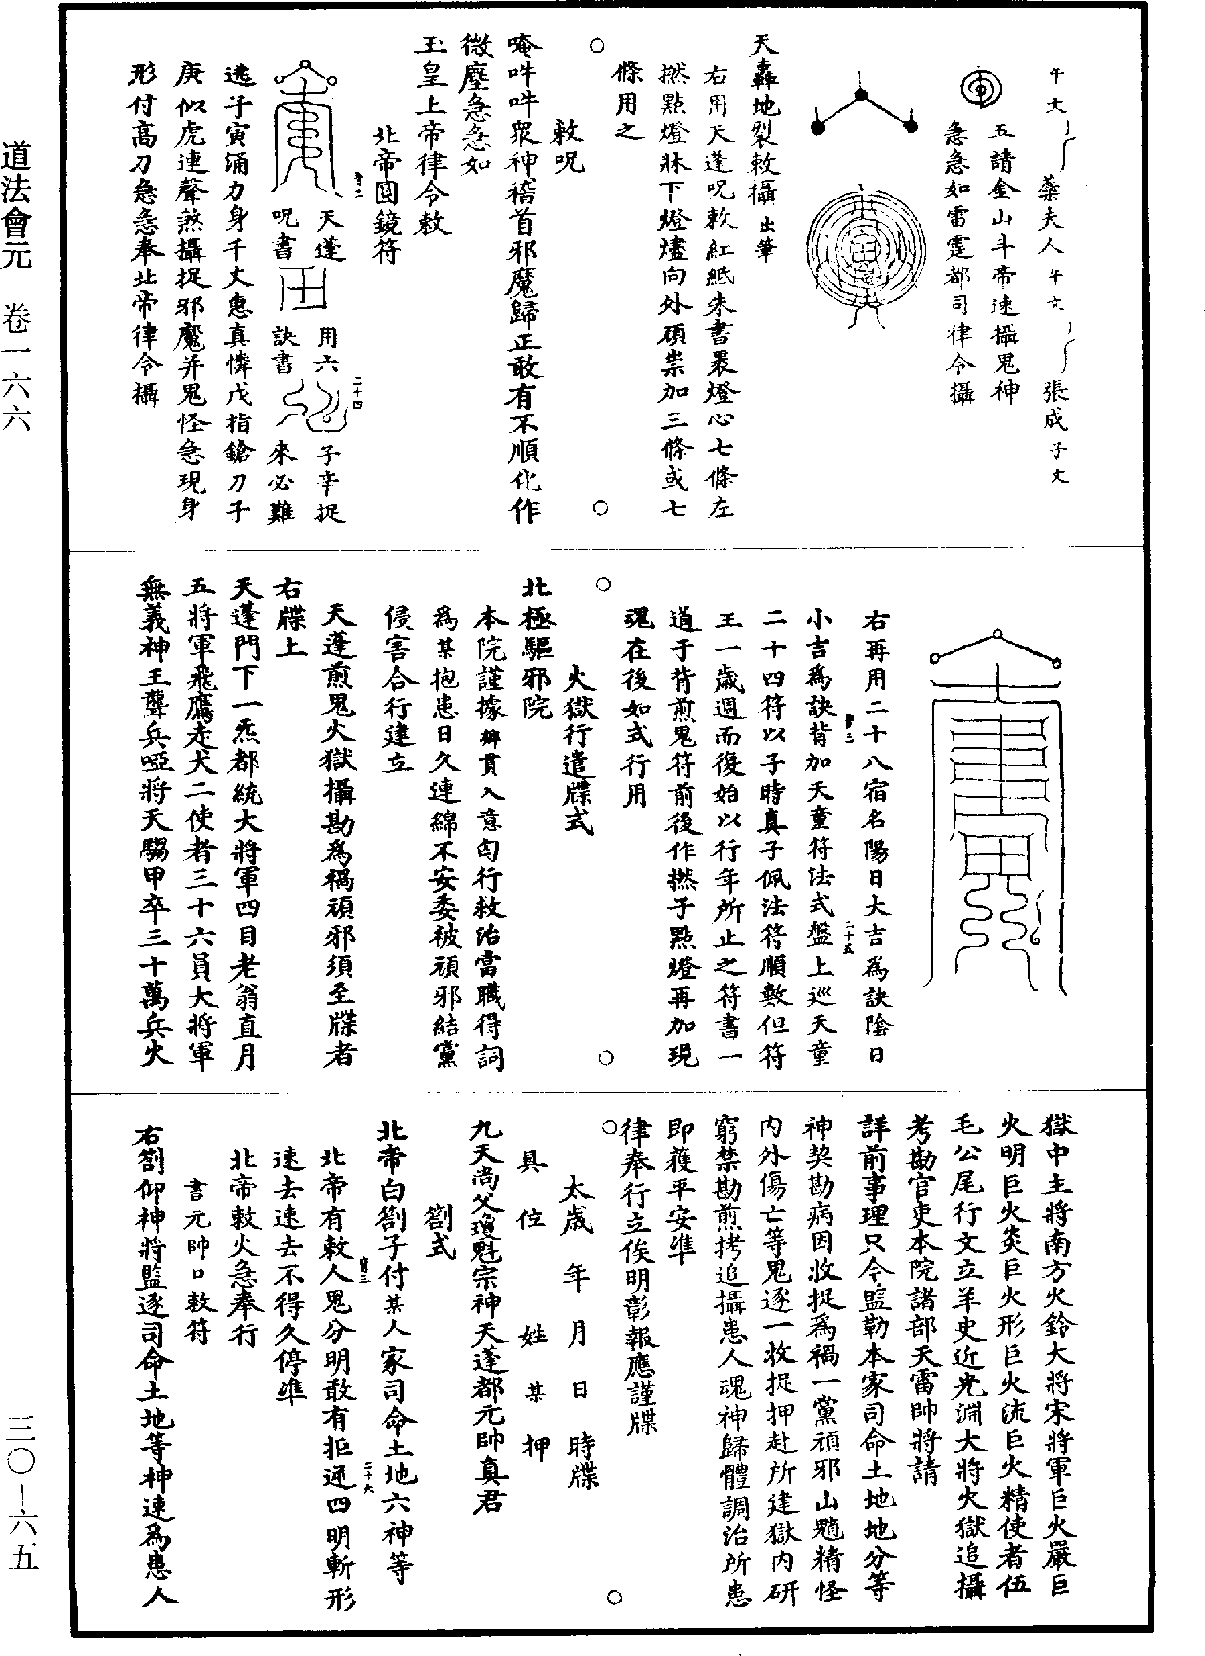 午文 藥夫人 午文 張成子文
五請金山斗帝速攝鬼神
急急如雷霆都司律令攝
天轟地裂敕攝 出筆
右用天蓬呪敕紅紙朱書裹燈心七條左
撚點燈牀下燈爐向外碩祟加三條或七
條用之
敕呪
唵吽吽眾神稽首邪魔歸正敢有不順化作
微塵急急如
玉皇上帝律令敕
北帝圓鏡符
天蓬呪書
用六訣書
二十四
子辛捉來必難
逃子寅涌力身千丈惠真憐戊指鎗刀子
庚似虎連聲煞攝捉邪魔并鬼怪急現身
形付高刀急急奉北帝律令攝
右再用二十八宿名陽日大吉為訣陰日
小吉為訣背加天童符法式盤上巡天童
二十五
二十四符以子時真子佩法符順數但符
王一歲週而復始以行年所止之符書一
道于背煎鬼符前後作撚子點燈再加現
魂在後如式行用
火獄行遣牒式
北極驅邪院
本院謹據鄉貫入意匄行救治當職得詞
為某抱患日久連綿不安委被頑邪結黨
侵害合行建立
天蓬煎鬼火獄攝勘為禍頑邪須至牒者
右牒上
天蓬門下一炁都統大將軍四目老翁直月
五將軍飛鷹走犬二使者三十六員大將軍
無義神王聾兵啞將天騶甲卒三十萬兵火
獄中主將南方火鈴大將宋將軍巨火嚴巨
火明巨火炎巨火形巨火流巨火精使者伍
毛公尾行文立羊史近光淵大將火獄追攝
考勘官吏本院諸部天雷帥將請
詳前事理只今監勒本家司命土地地分等
神契勘病因收捉為禍一黨頑邪山魈精怪
內外傷亡等鬼逐一收捉押赴所建獄內研
窮禁勘煎拷追攝患人魂神歸體調治所患
即獲平安準
律奉行立俟明彰報應謹牒
太歲 年 月 日 時牒
具 位 姓 某 押
九天尚父瓊魁宗神天蓬都元帥真君
劄式
北帝白劄子付某人家司命土地六神等
北帝有敕人鬼分明敢有拒逆四明斬形
二十六
速去速去不得久停準
北帝敕火急奉行
書元帥口敕符
右劄仰神將監逐司命土地等神速為患人
道法會元 卷一六六
三〇—六五